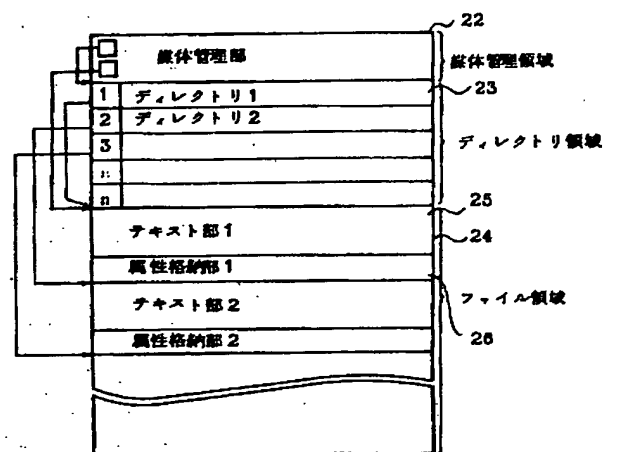 22
媒体管理部
媒体管理領域
1 ディレクトリ1
23
2 ディレクトリ2
3
ディレクトリ領域
n
25
テキスト部1
24
属性格納部1
テキスト部2
ファイル領域
属性格納部2
26